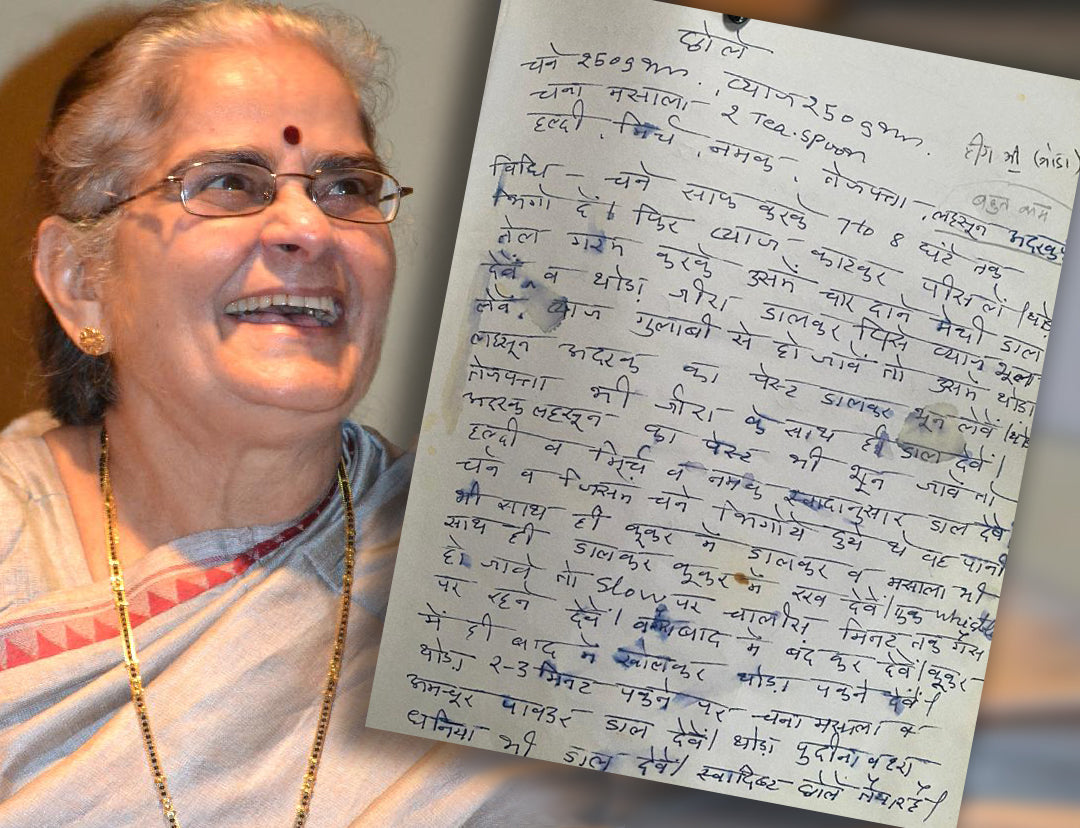 छोले
चने 250 gm. प्याज 250 gm.
चना मसाला - 2 Tea. spoon
हल्दी, मिर्च, नमक, तेजपत्ता, लहसून अदरक
हींग भी (सोडा)
बहुत कम
विधि - चने साफ करके 7 to 8 घंटे तक
भिगो दें। फिर प्याज काटकर पीस लें।
तेल गरम करके उसमें चार दाने मेथी डाल
देवें व थोड़ा जीरा डालकर पिसे प्याज भून
लेवें. प्याज गुलाबी से हो जावें तो उसमें थोड़ा
लहसून अदरक का पेस्ट डालकर भून लेवें।
तेजपत्ता भी जीरा के साथ ही डाल देवें।
अदरक लहसून का पेस्ट भी भून जावें तो
हल्दी व मिर्च व नमक स्वादानुसार डाल देवें
चने व जिसमें चने भिगोये हुये थे वह पानी
भी साथ ही कूकर में डालकर व मसाला भी
साथ ही डालकर कूकर में रख देवें। एक whistle
हो जावे तो Slow पर चालीस मिनट तक गैस
पर रहने देवें। बाद में बंद कर देवें। कूकर
में ही बाद में खोलकर थोड़ा पकने देवें।
थोड़ा 2-3 मिनट पकने पर चना मसाला व
अमचूर पावडर डाल देवें। थोड़ा पुदीना व हरा
धनिया भी डाल देवें। स्वादिष्ट छोले तैयार हैं।